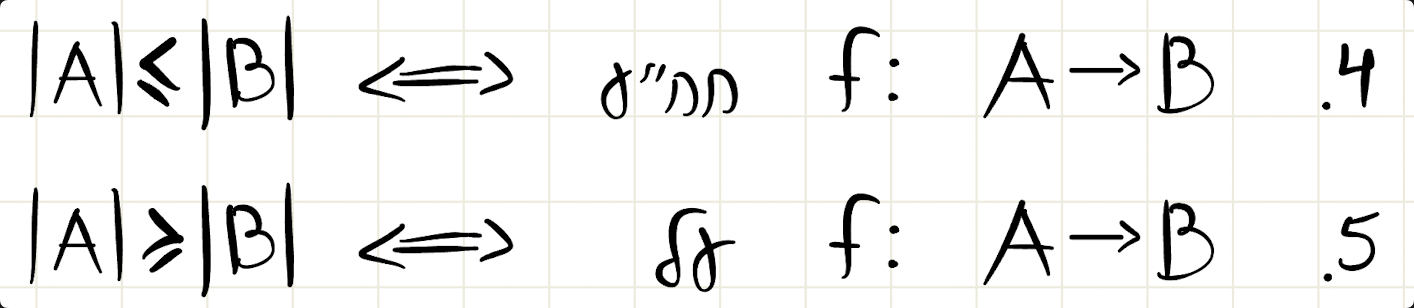 4. f: A → B חח"ע ⟺ |A| ≤ |B|
5. f: A → B על ⟺ |A| ≥ |B|